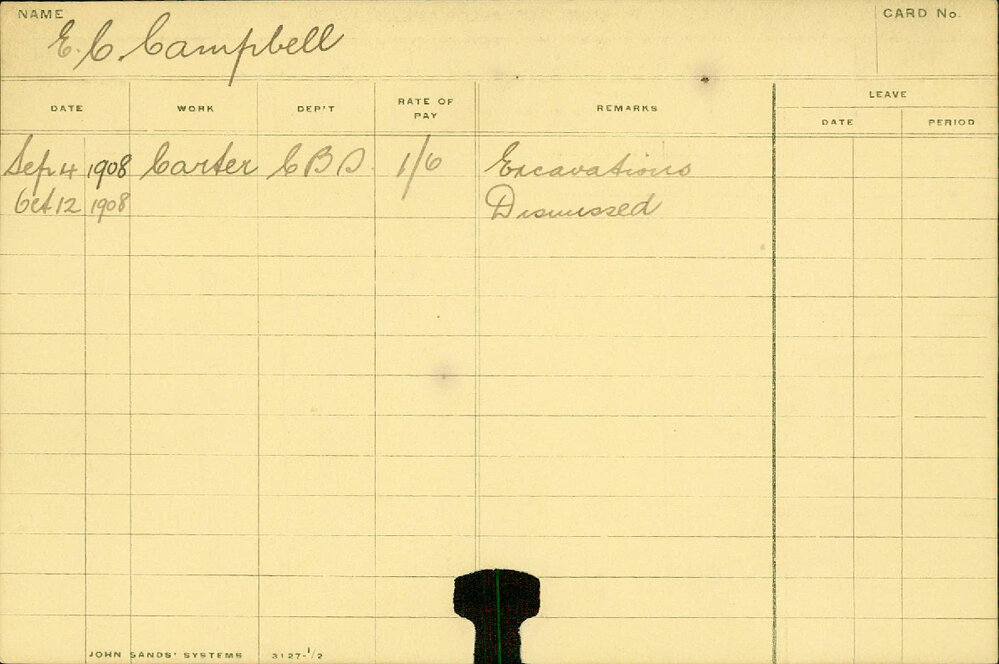 NAME
CARD No.
E. C. Campbell
DATE WORK DEP'T RATE OF PAY REMARKS LEAVE
DATE PERIOD
Sep 4 1908 Carter C B D. 1/6 Excavations
Oct 12 1908 Dismissed
JOHN SANDS' SYSTEMS 3127-1/2